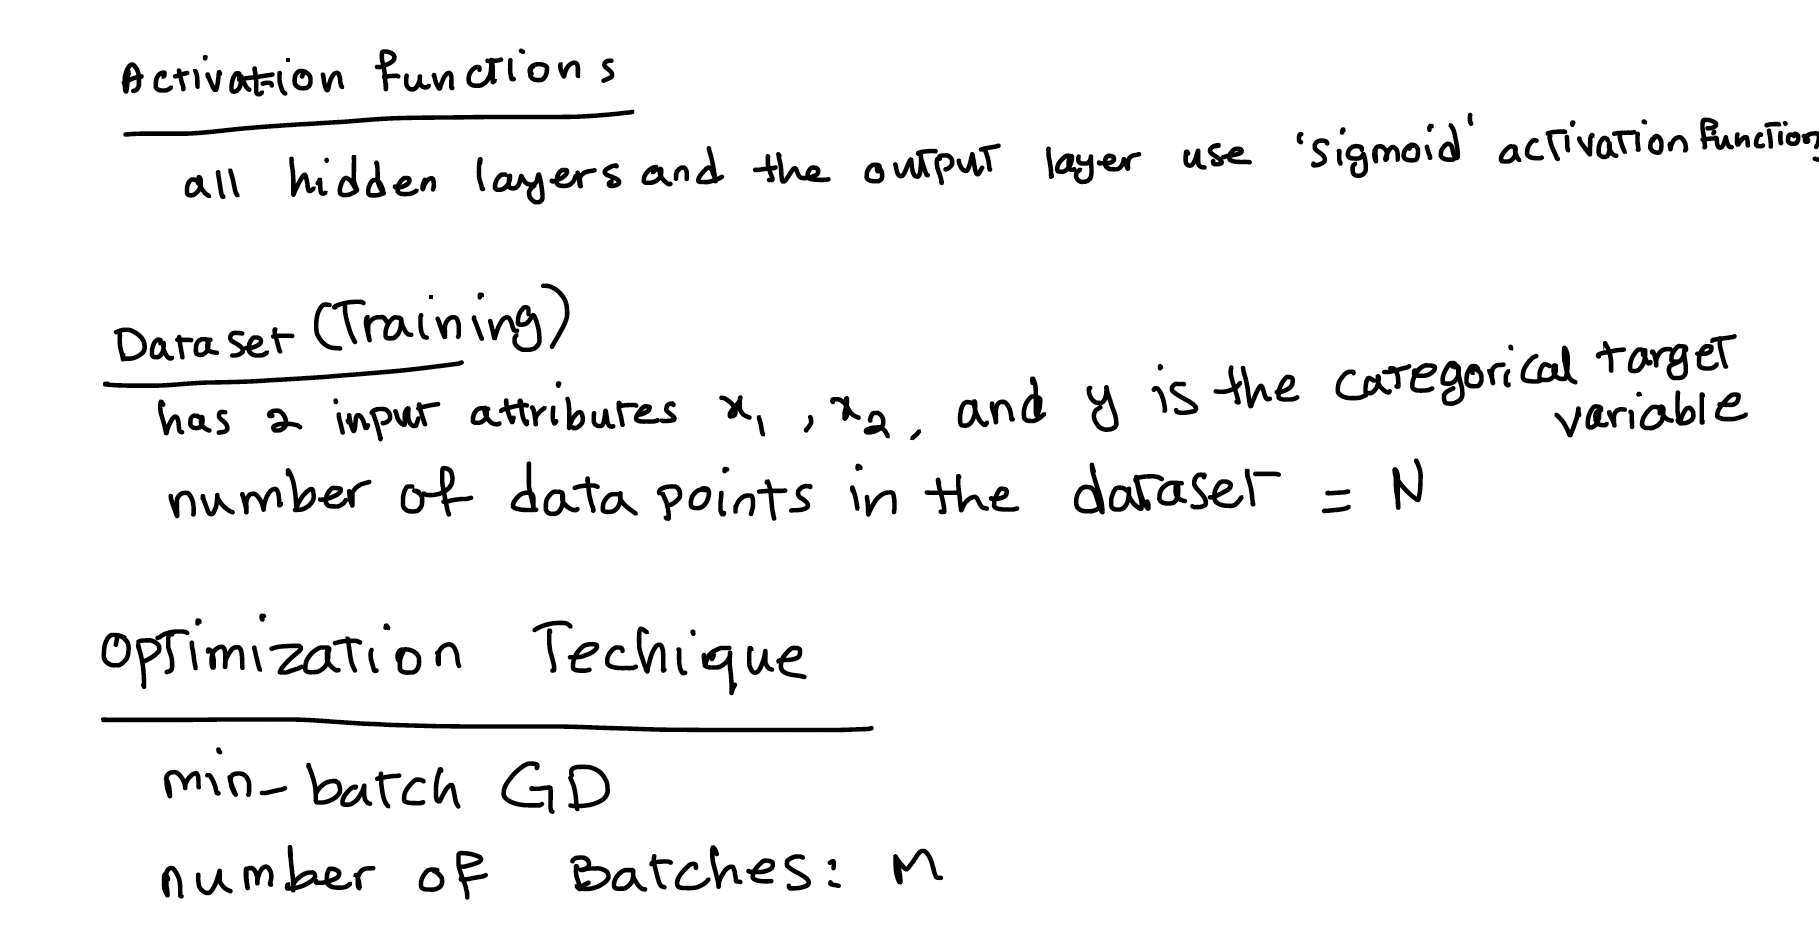 Activation functions
all hidden layers and the output layer use 'sigmoid' activation function
Dataset (Training)
has 2 input attributes x₁, x₂, and y is the categorical target
variable
number of data points in the dataset = N
Optimization Techique
min-batch GD
number of Batches: M